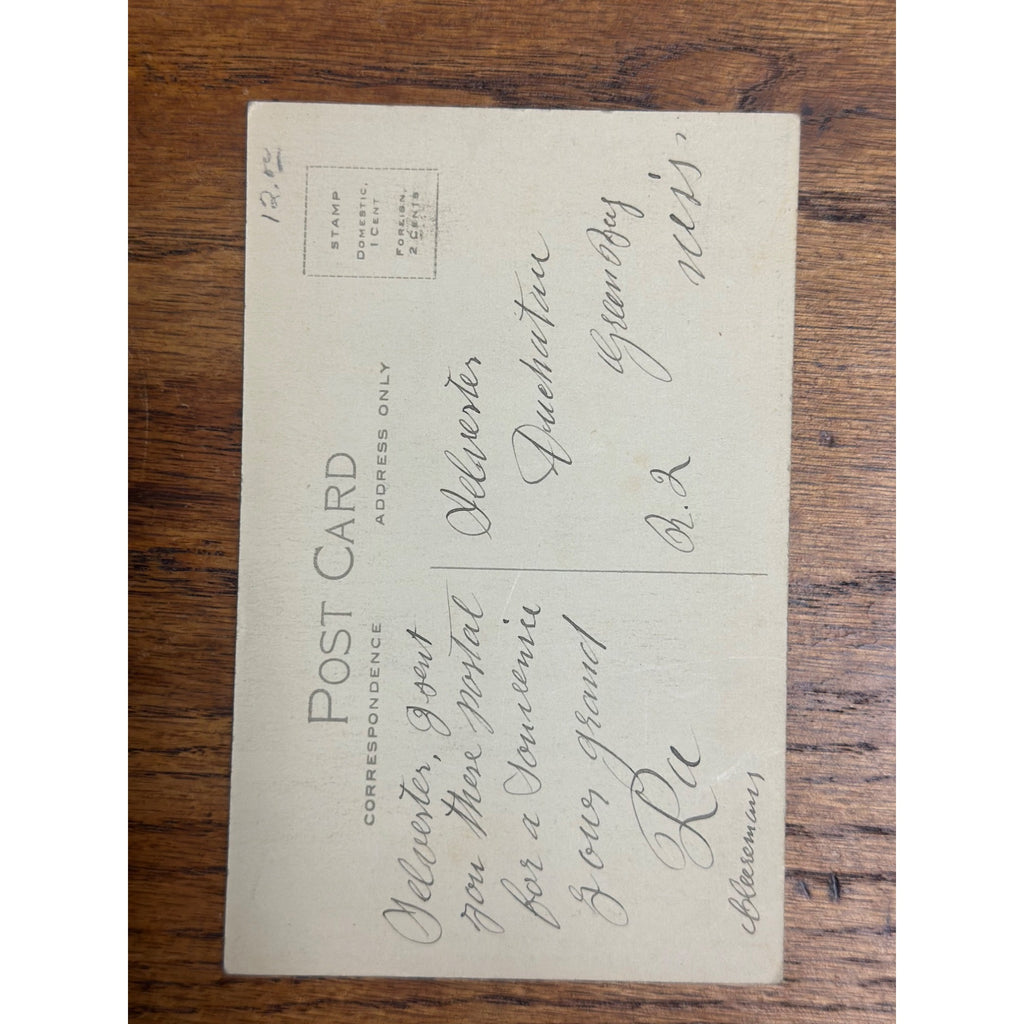 12.00
POST CARD
CORRESPONDENCE
ADDRESS ONLY
STAMP
DOMESTIC,
1 CENT
FOREIGN,
2 CENTS
Selvester, I sent
you these postal
for a Souvenir
your grand
Pa
Selvester
Duchatau
R. 2 Green Bay
Wis